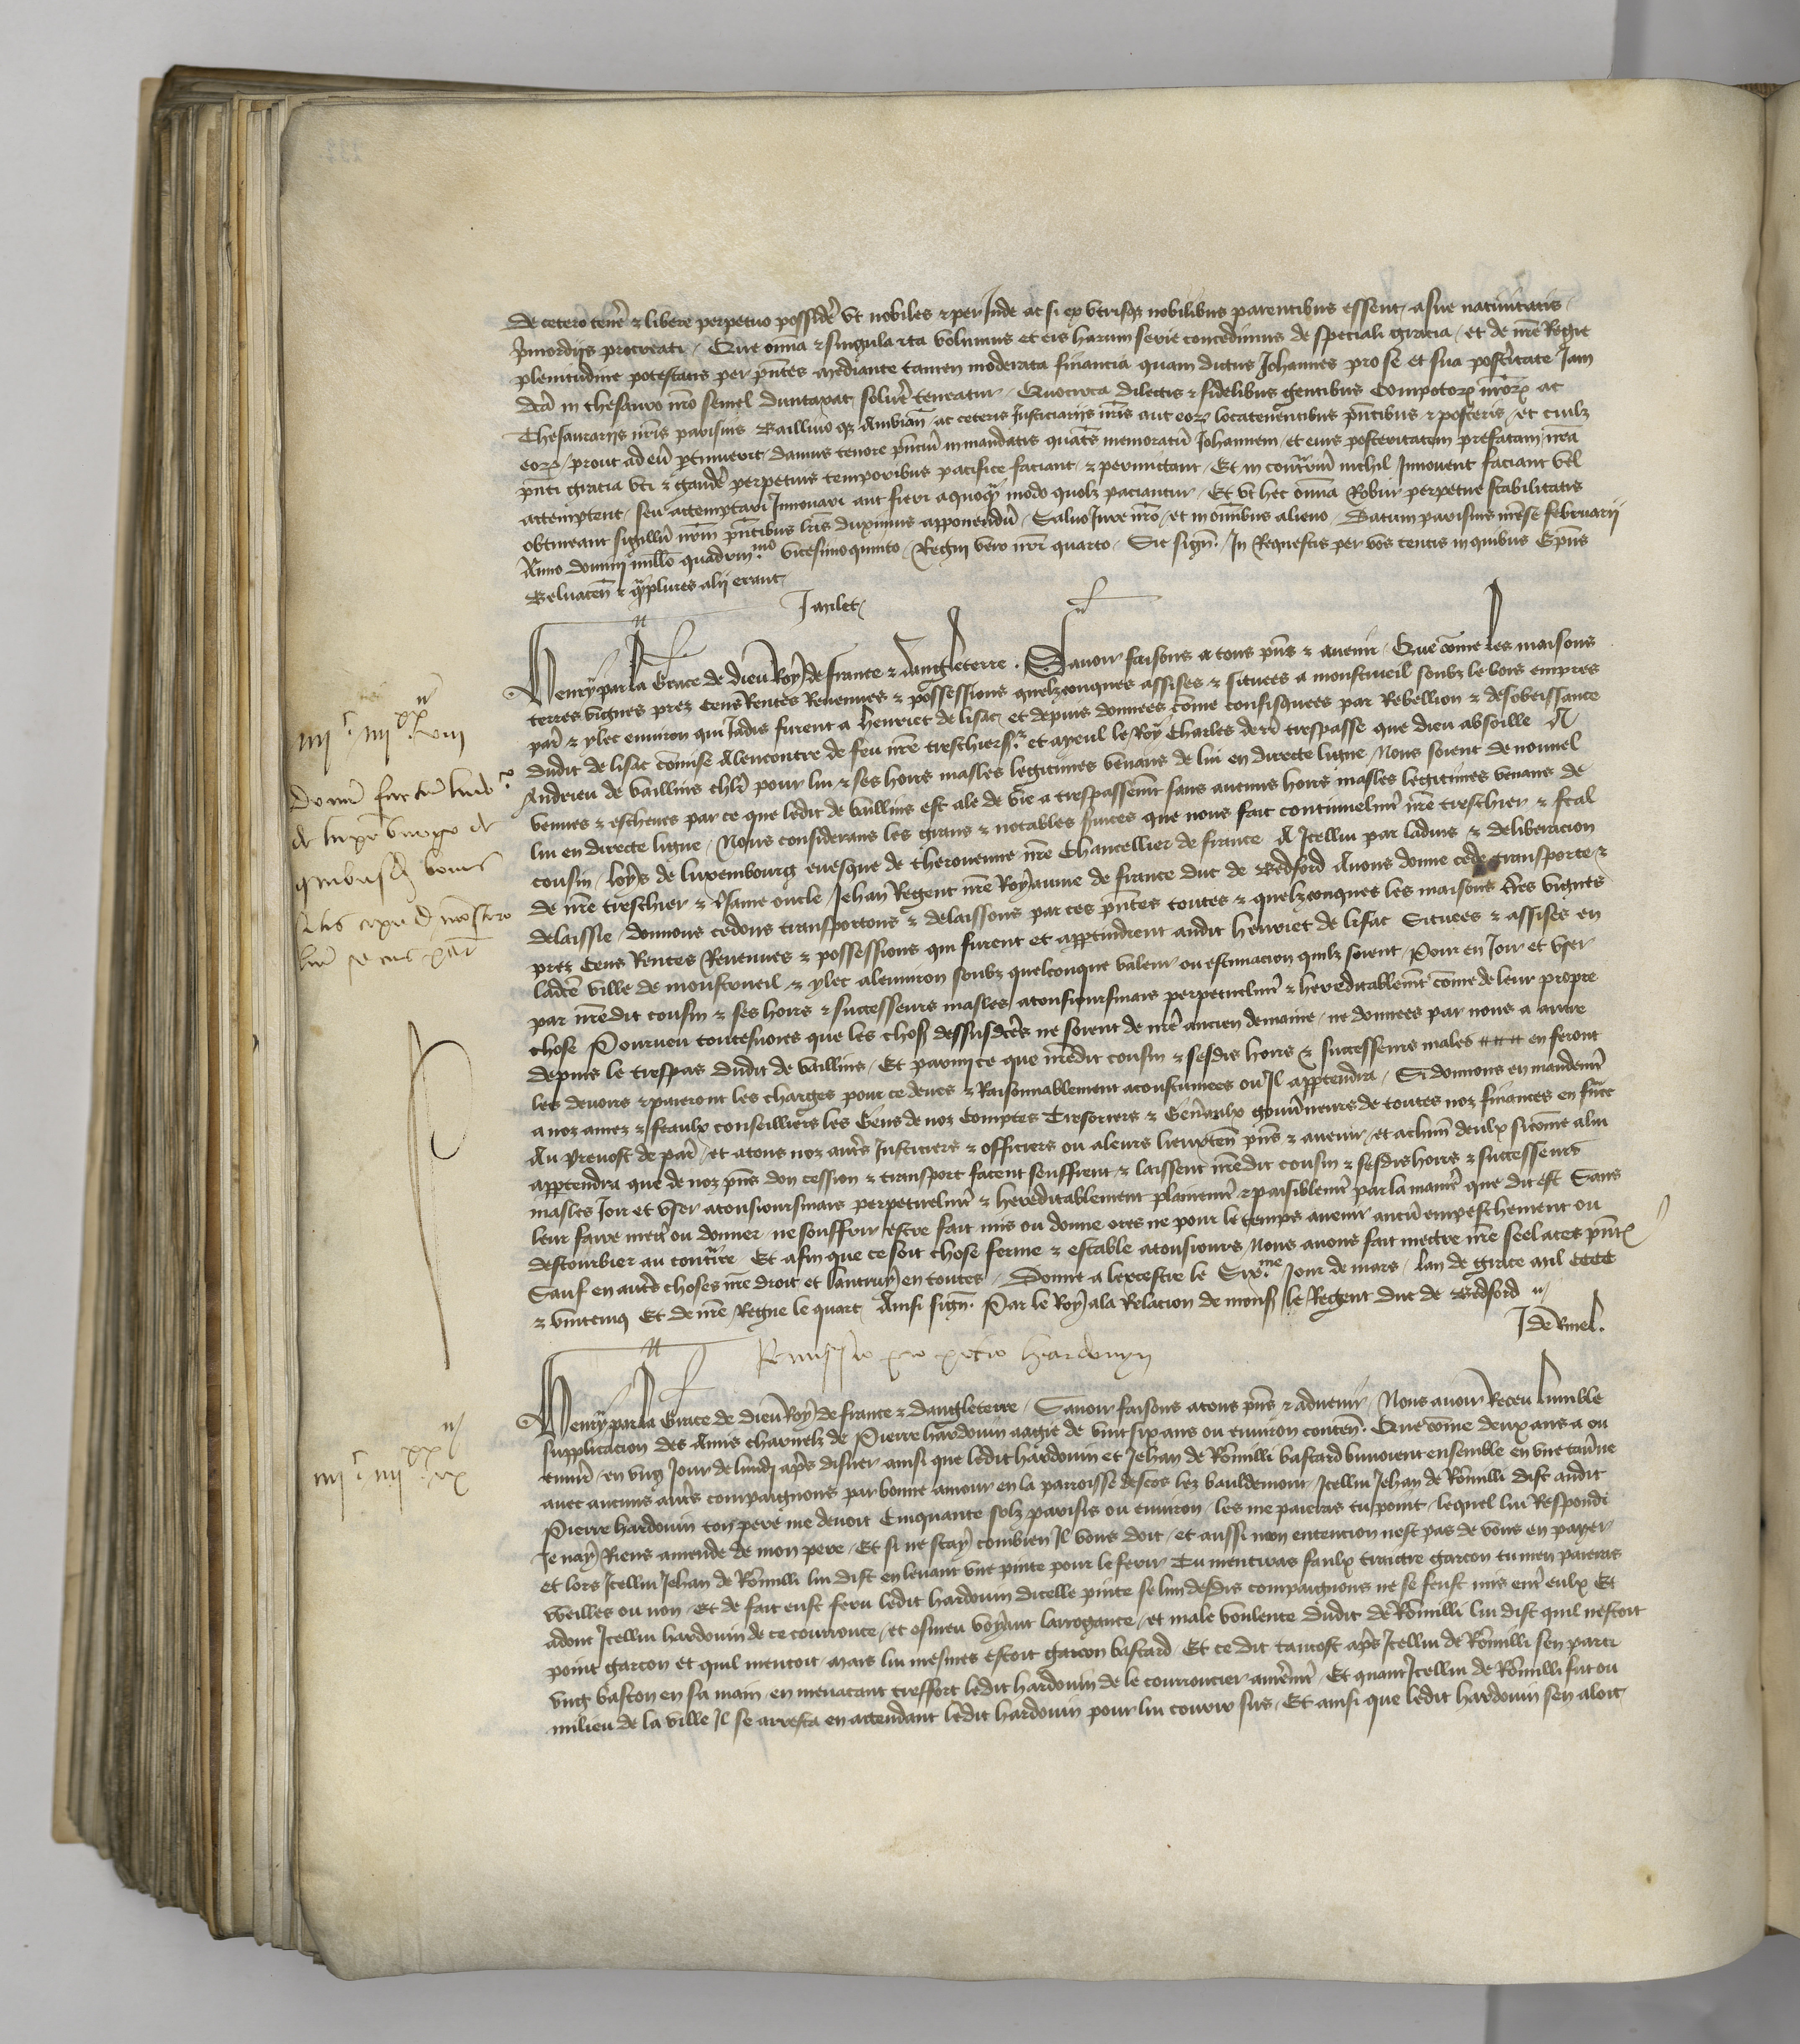 De cetero tenere & libere perpetuo possidere ut nobiles & perinde ac si ex utrisque nobilibus parentibus essent a sue nativitatis
primordiis procreati. Que omnia & singula ita volumus et eis harum serie concedimus de speciali gracia et de nostre Regie
plenitudine potestatis per presentes mediante tamen moderata financia quam dictus Johannes pro se et sua posteritate Jam
dicta in thesauro nostro semel duntaxat solvere teneatur. Quocirca dilectis & fidelibus gentibus Compotorum nostrorum ac
Thesaurariis nostris parisius Baillivoque Ambian ac ceteris Justiciariis nostris aut eorum locatenentibus presentibus & posteris et cuilz
eorum prout ad eum pertinuerit damus tenore presentium in mandatis quatenus memoratum Johannem et eius posteritatem prefatam nostra
presenti gracia uti & gaudere perpetuis temporibus pacifice faciant & permictant. Et in contrarium nichil Innovent faciant vel
attemptent seu attemptari Innovari aut fieri a quoquam modo quolz paciantur. Et ut hec omnia Robur perpetue stabilitatis
obtineant sigillum nostrum presentibus litteris duximus apponendum. Salvo Jure nostro et in omnibus alieno. Datum parisius mense februarii
Anno domini millesimo quadringen.mo vicesimoquinto Regni vero nostri quarto. Sic sign. In Requestis per vos tentis in quibus Episcopus
Belvacen & quamplures alii erant
Janlet
Henry par la Grace de dieu Roy de france & dangleterre. Savoir faisons a tous presens & avenir Que comme les maisons
terres vignes prez cens Rentes Revenues & possessions quelzconques assises & situees a monstrueil soubz le bois empres
paris & ylec environ qui Jadis furent a henriet de lisac et depuis donnees comme confisquees par Rebellion & desobeissance
dudit de lisac commise Alencontre de feu nostre treschier sr et ayeul le Roy Charles derrenier trespasse que dieu absoille A
Andrieu de vaillins chlr pour lui & ses hoirs masles legitimes venans de lui en directe ligne Nous soient de nouvel
venues & escheues par ce que ledit de vaillins est ale de vie a trespassement sans aucuns hoirs masles legitimes venans de
lui en directe ligne. Nous considerans les grans & notables services que nous fait continuelment nostre treschier & feal
cousin loys de luxembourg evesque de therouenne nostre Chancellier de france A Icellui par ladvis & deliberacion
de nostre treschier & tresame oncle Jehan Regent nostre Royaume de france duc de Bedford Avons donne cede transporte &
delaissie donnons cedons transportons & delaissons par ces presentes toutes & quelzconques les maisons terres vignes
prez Cens Rentes Revenues & possessions qui furent et appartindrent audit henriet de lisac Situees & assises en
ladicte ville de monstrueil & ylec alenviron soubz quelconque valeur ou estimacion quilz soient. Pour en Joir et user
par nostredit cousin & ses hoirs & successeurs masles atousioursmais perpetuelment & hereditablement comme de leur propre
chose Pourveu toutesvoies que les choses dessusdictes ne soient de nostre ancien demaine ne donnees par nous a autre
depuis le trespas dudit de vaillins. Et parmi ce que nostredit cousin & sesdis hoirs & successeurs males en feront
les devoirs & paieront les charges pour ce deues & Raisonnablement acoustumees ou Il appartendra. Si donnons en mandement
a noz amez & feaulx conseilliers les Gens de noz Comptes Tresoriers & Generaulx gouverneurs de toutes noz finances en france
Au Prevost de paris et a tous noz autres Justiciers & officiers ou a leurs lieuxten presens & avenir et a chun deulx si comme a lui
appartendra que de noz presens don cession & transport facent seuffrent & laissent nostredit cousin & sesdis hoirs & successeurs
masles Joir et user atousioursmais perpetuelment & hereditablement plainement & paisiblement par la maniere que dit est Sans
leur faire mectre ou donner ne souffrir estre fait mis ou donne ores ne pour le temps avenir aucun empeschement ou
destourbier au contraire. Et afin que ce soit chose ferme & estable atousiours Nous avons fait mectre nostre seel a ces presentes
Sauf en autres choses nostre droit et lautruy en toutes. Donne a leycestre le Six.me Jour de mars lan de grace mil cccc
& vintcinq Et de nostre Regne le quart. Ainsi sign. Par le Roy a la Relacion de monsr le Regent duc de Bedford
J de Rinel.
iiij c iiij xx xviij
Donum factum ludo.co
de luxemburgo de
quibusdam bonis
situs apud monstro
lium prope par
Remissio pro petro hardouyn
Henry par la Grace de dieu Roy de france & dangleterre. Savoir faisons a tous presens & advenir Nous avoir Receu lumble
supplicacion des Amis charnelz de Pierre hardouin aagie de vint six ans ou environ conten. Que comme deux ans a ou
environ en ung Jour de lundi apres disner ainsi que ledit hardouin et Jehan de Romilli bastard buvoient ensemble en une taverne
avec aucuns autres compaignons par bonne amour en la parroisse descos lez bauldemont Icellui Jehan de Romilli dist audit
Pierre hardouin ton pere me devoit Cinquante solz parisis ou environ les me paieras tu point lequel lui Respondi
Je nay Riens amende de mon pere Et si ne scay combien Il vous doit et aussi mon entencion nest pas de vous en payer
et lors Icellui Jehan de Romilli lui dist en levant une pinte pour le ferir Tu mentiras faulx traictre garcon tu men paieras
veilles ou non Et de fait eust feru ledit hardouin dicelle pinte se lun desdis compaignons ne se feust mis entre eulx Et
adont Icellui hardouin de ce courrouce et esmeu voyant larrogance et male voulente dudit de Romilli lui dist quil nestoit
point garcon et quil mentoit mais lui mesmes estoit garcon bastard Et ce dit tantost apres Icellui de Romilli sen parti
ung baston en sa main en menacant tresfort ledit hardouin de le courroucier autrement Et quant Icellui de Romilli fut ou
milieu de la ville Il se arresta en attendant ledit hardouin pour lui courir sus. Et ainsi que ledit hardouin sen aloit
iiij c iiij xx xix